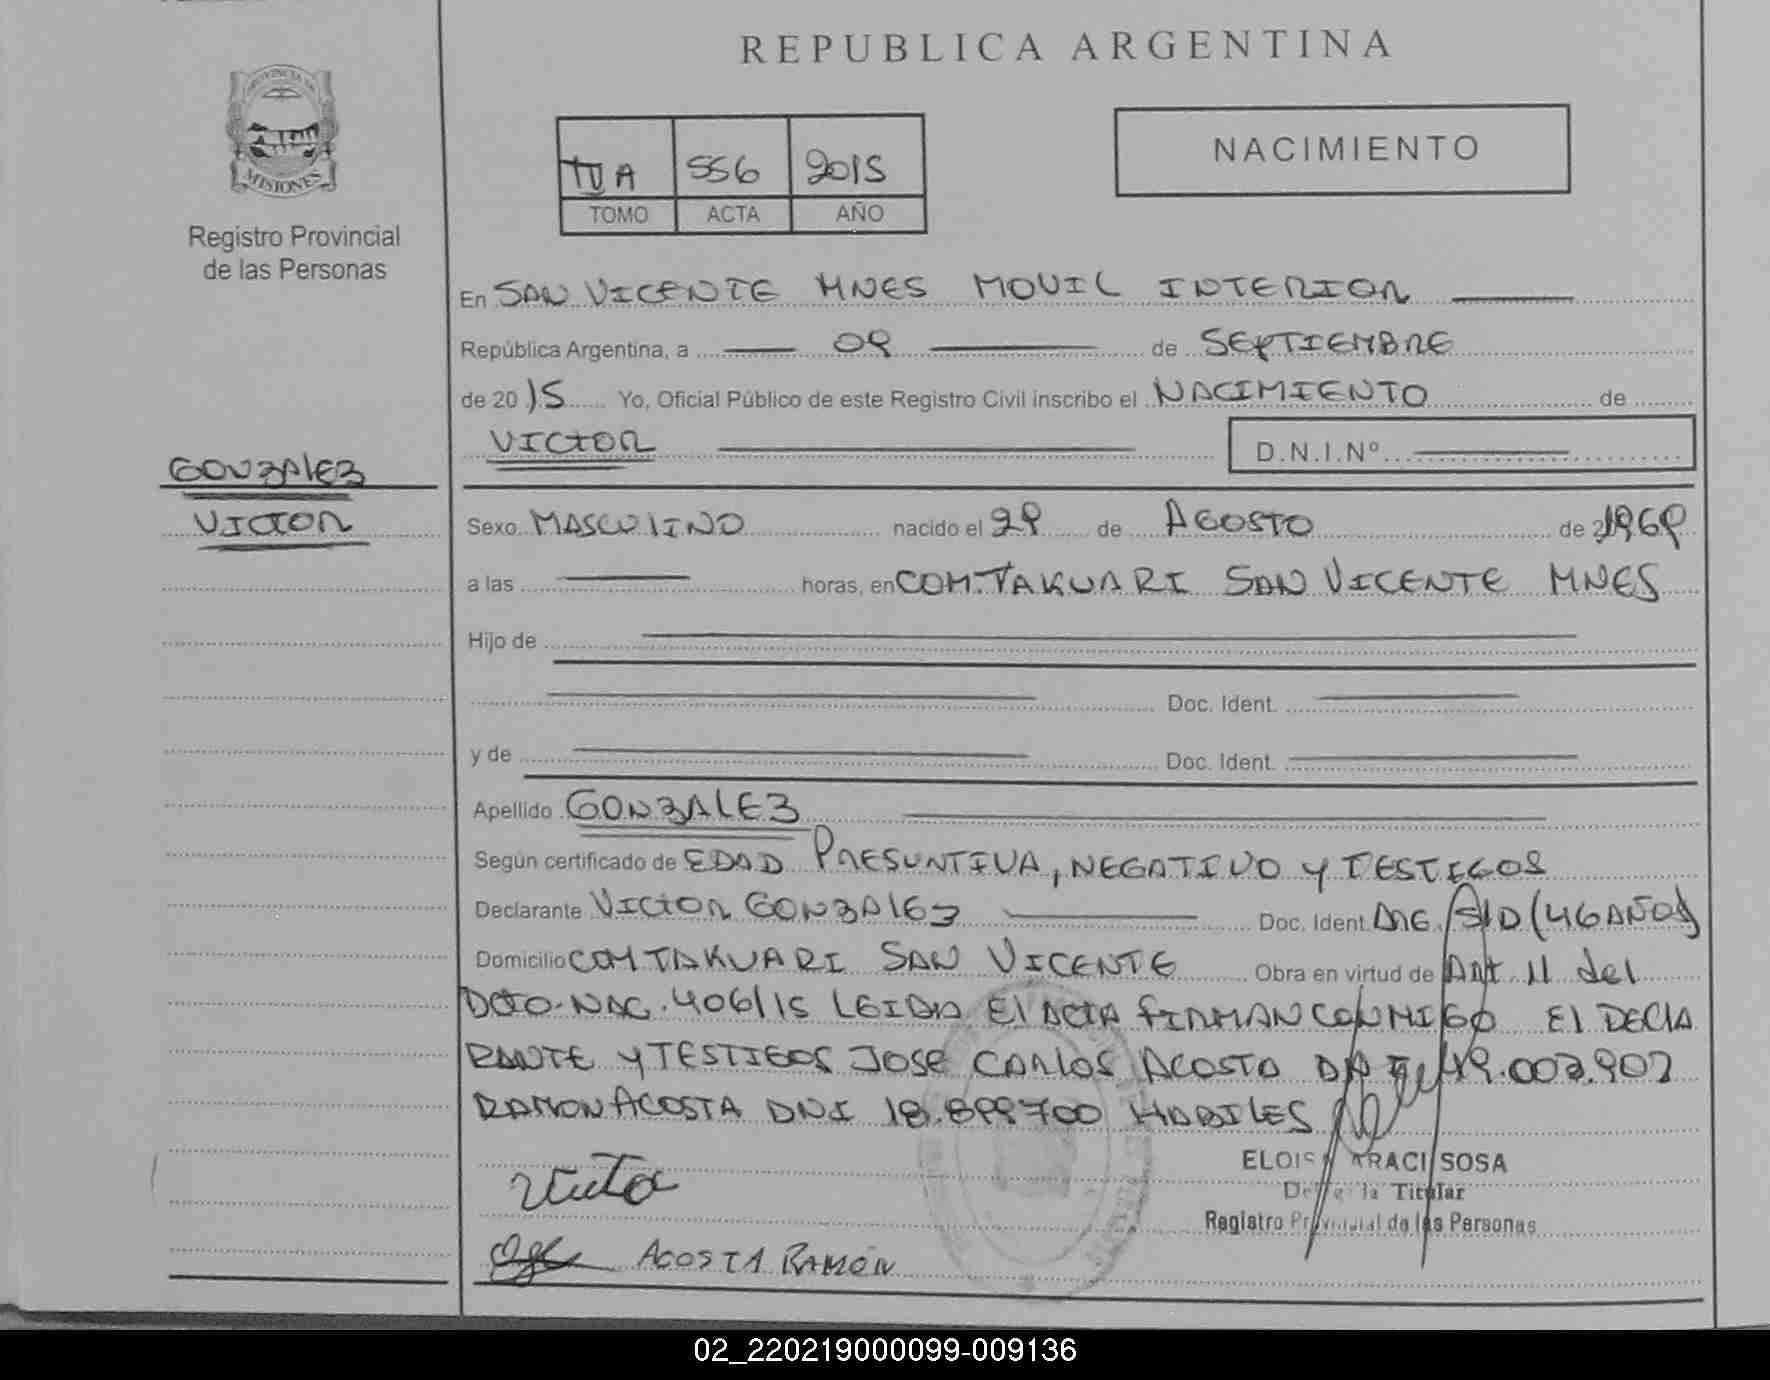 REPUBLICA ARGENTINA
PROVINCIA DE
MISIONES
Registro Provincial
de las Personas
NACIMIENTO
TU A 556 2015
TOMO ACTA AÑO
En SAN VICENTE MNES MOVIL INTERIOR
República Argentina, a 09 de SEPTIEMBRE
de 2015 Yo, Oficial Público de este Registro Civil inscribo el NACIMIENTO de
VICTOR D.N.I.Nº
GONZALEZ
VICTOR
Sexo MASCULINO nacido el 29 de AGOSTO de 1969
a las horas, en COM. TAKUARI SAN VICENTE MNES
Hijo de
Doc. Ident.
y de Doc. Ident.
Apellido GONZALEZ
Según certificado de EDAD PRESUNTIVA, NEGATIVO Y TESTIGOS
Declarante VICTOR GONZALEZ Doc. Ident. ARG. S/D (46 AÑOS)
Domicilio COM TAKUARI SAN VICENTE Obra en virtud de Art 11 del
DCTO. NAC. 406/15 LEIDA El ACTA FIRMAN CONMIGO El DECLA
RANTE Y TESTIGOS JOSE CARLOS ACOSTA
RAMON ACOSTA DNI 18.899700 HABILES
ELOISA ARACI SOSA
Titular
Registro Provincial de las Personas
ACOSTA RAMÓN
02_220219000099-009136